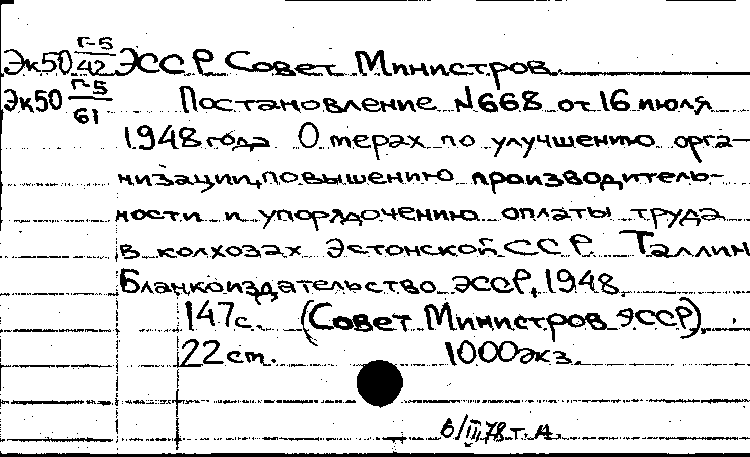 Эк50 Г-5/42 ЭССР. Совет Министров.
Эк50 Г-5/61 Постановление №668 от 16 июля
1948 года О мерах по улучшению орга-
низации, повышению производитель-
ности и упорядочению оплаты труда
в колхозах Эстонской ССР. Таллин
Бланкоиздательство ЭССР, 1948.
147с. (Совет Министров ЭССР).
22 см. 1000 экз.
6/III 78 т. А.